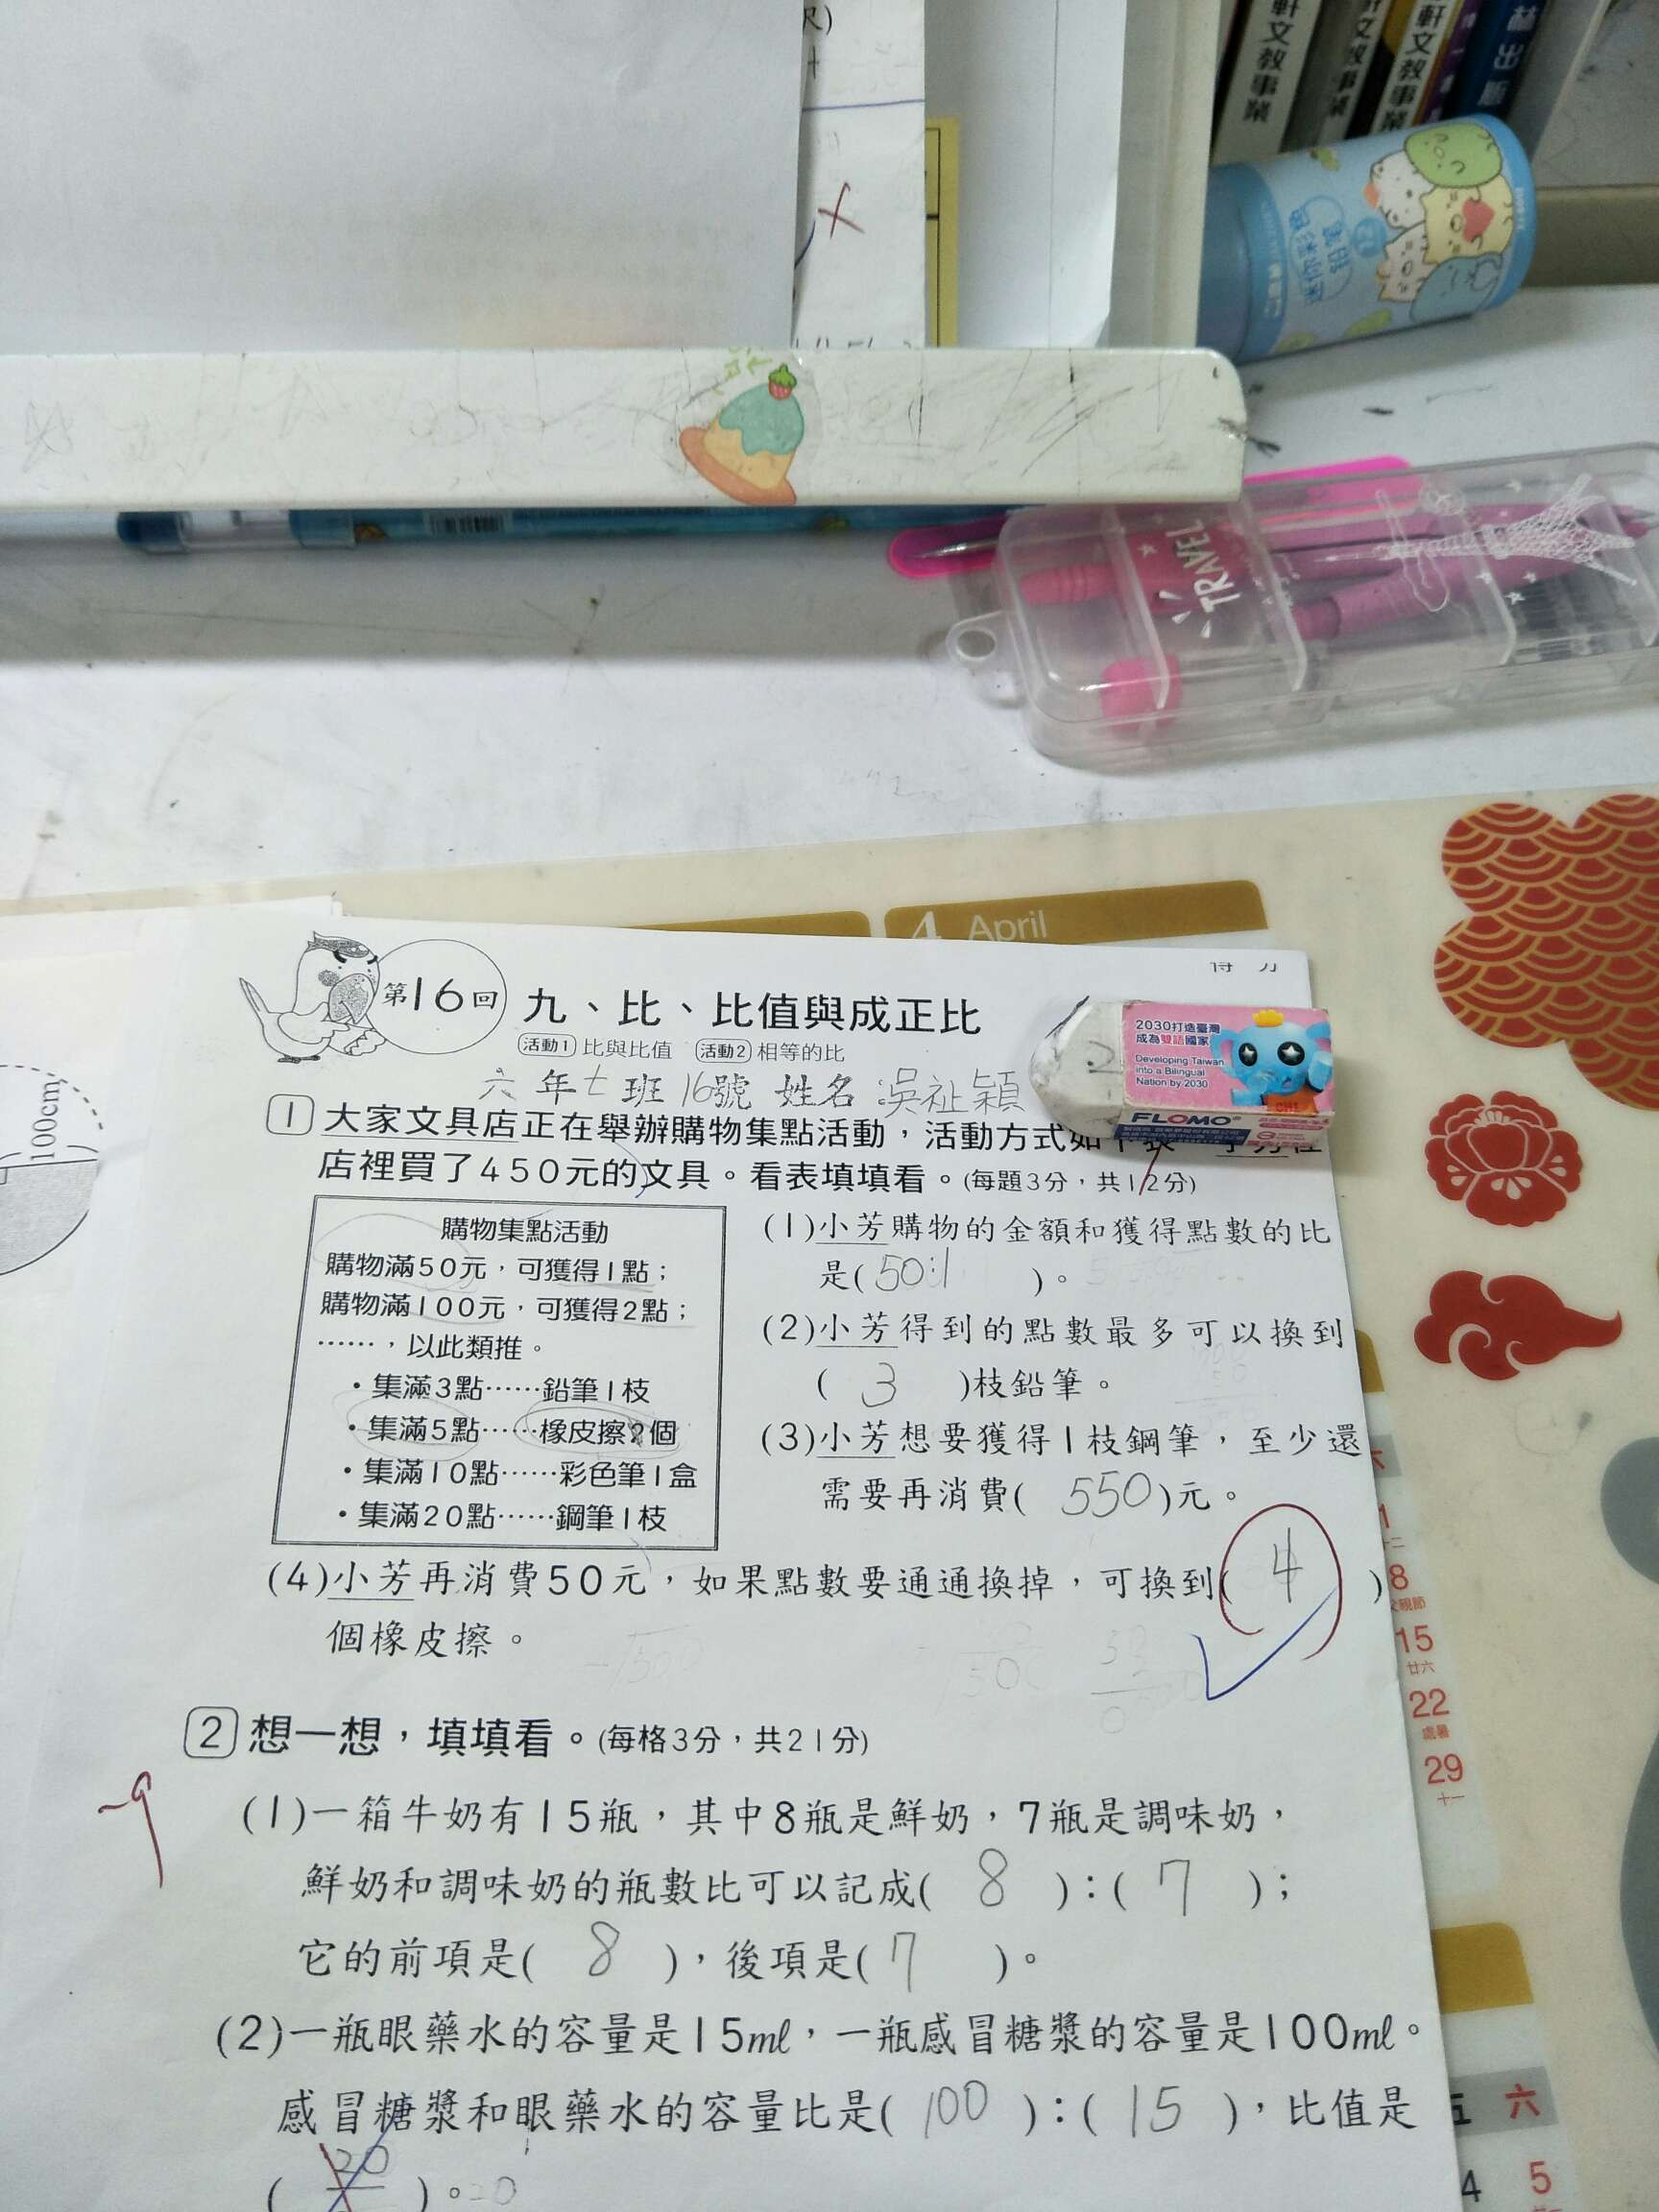 軒文教事業
軒文教事業
軒文教事業
林出版
迷你彩色
鉛筆
TRAVEL
4 April
得 分
100cm
第16回
九、比、比值與成正比
活動1 比與比值 活動2 相等的比
2030打造臺灣
成為雙語國家
Developing Taiwan
into a Bilingual
Nation by 2030
FLOMO
六年七班16號 姓名 吳祉穎
1 大家文具店正在舉辦購物集點活動,活動方式如下表
店裡買了450元的文具。看表填填看。(每題3分,共12分)
購物集點活動
購物滿50元,可獲得1點;
購物滿100元,可獲得2點;
……,以此類推。
•集滿3點……鉛筆1枝
•集滿5點……橡皮擦2個
•集滿10點……彩色筆1盒
•集滿20點……鋼筆1枝
(1)小芳購物的金額和獲得點數的比
是( 50:1 )。
(2)小芳得到的點數最多可以換到
( 3 )枝鉛筆。
(3)小芳想要獲得1枝鋼筆,至少還
需要再消費( 550 )元。
(4)小芳再消費50元,如果點數要通通換掉,可換到( 4 )
個橡皮擦。
2 想一想,填填看。(每格3分,共21分)
-9
(1)一箱牛奶有15瓶,其中8瓶是鮮奶,7瓶是調味奶,
鮮奶和調味奶的瓶數比可以記成( 8 ):( 7 );
它的前項是( 8 ),後項是( 7 )。
(2)一瓶眼藥水的容量是15ml,一瓶感冒糖漿的容量是100ml。
感冒糖漿和眼藥水的容量比是( 100 ):( 15 ),比值是
( 20 )。
8
父親節
15
廿六
22
處暑
29
十一
五 六
4 5